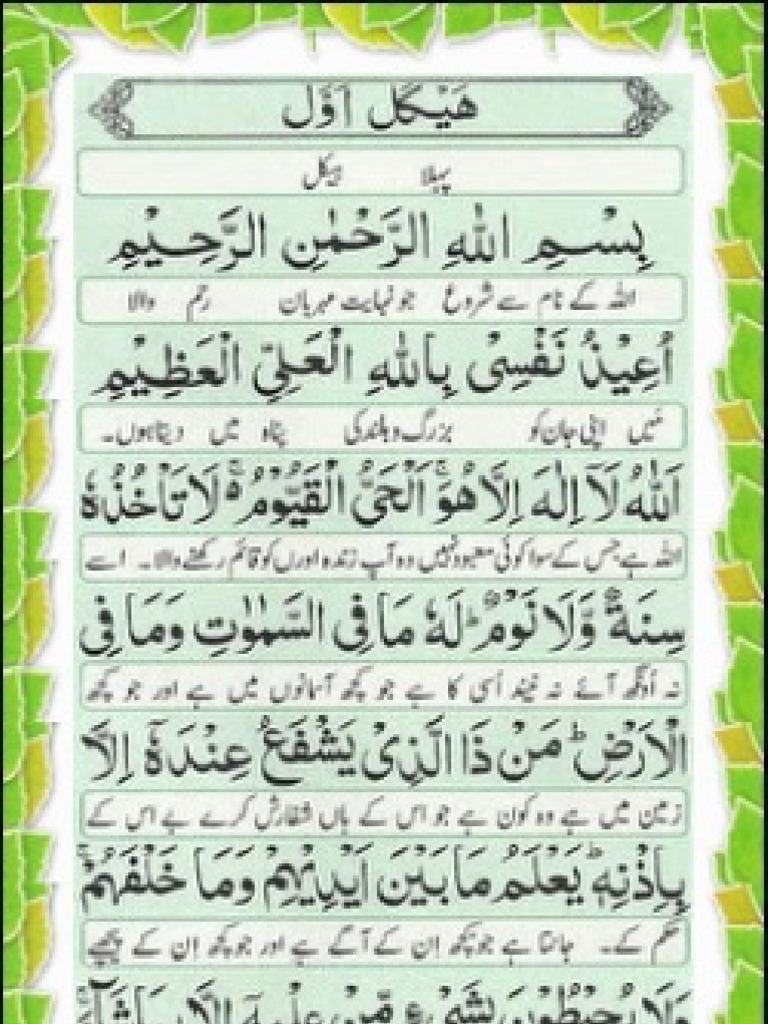 هَيْكَل اَوَّل
پہلا ہیکل
بِسْمِ اللّٰهِ الرَّحْمٰنِ الرَّحِيْمِ
اللہ کے نام سے شروع جو نہایت مہربان رحم والا
اُعِيْذُ نَفْسِىْ بِاللّٰهِ الْعَلِيِّ الْعَظِيْمِ
میں اپنی جان کو بزرگ و بلند کی پناہ میں دیتا ہوں۔
اَللّٰهُ لَآ اِلٰهَ اِلَّا هُوَ ۚ اَلْحَىُّ الْقَيُّوْمُ ۚ ە لَا تَاْخُذُهٗ
اللہ ہے جس کے سوا کوئی معبود نہیں وہ آپ زندہ اوروں کو قائم رکھنے والا۔ اسے
سِنَةٌ وَّلَا نَوْمٌ ؕ لَهٗ مَا فِى السَّمٰوٰتِ وَمَا فِى
نہ اُونگھ آئے نہ نیند اُسی کا ہے جو کچھ آسمانوں میں ہے اور جو کچھ
الْاَرْضِ ؕ مَنْ ذَا الَّذِىْ يَشْفَعُ عِنْدَهٗٓ اِلَّا
زمین میں ہے وہ کون ہے جو اس کے ہاں شفارش کرے بے اس کے
بِاِذْنِهٖ ؕ يَعْلَمُ مَا بَيْنَ اَيْدِيْهِمْ وَمَا خَلْفَهُمْ ۚ
حکم کے۔ جانتا ہے جو کچھ اِن کے آگے ہے اور جو کچھ اِن کے پیچھے
وَلَا يُحِيْطُوْنَ بِشَىْءٍ مِّنْ عِلْمِهٖٓ اِلَّا بِمَا شَآءَ ۚ